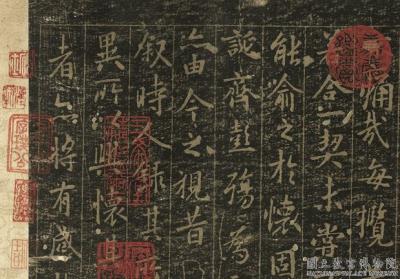 痛哉每攬
若合一契未嘗
能喻之於懷固
誕齊彭殤為
亦由今之視昔
敘時人錄其所
異所以興懷其
者亦將有感
國立故宮博物院